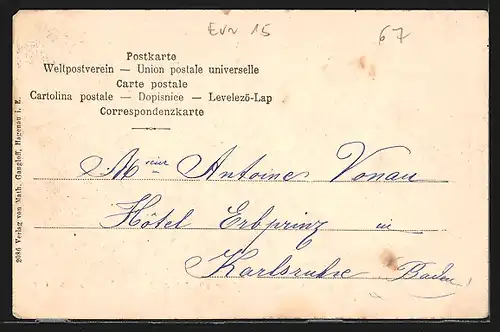 EVN 15
67
Postkarte
Weltpostverein — Union postale universelle
Carte postale
Cartolina postale — Dopisnice — Levelező-Lap
Correspondenzkarte
Mieur Antoine Vonau
Hôtel Erbprinz in
Karlsruhe (Baden)
2086 Verlag von Math. Gangloff, Hagenau i. E.